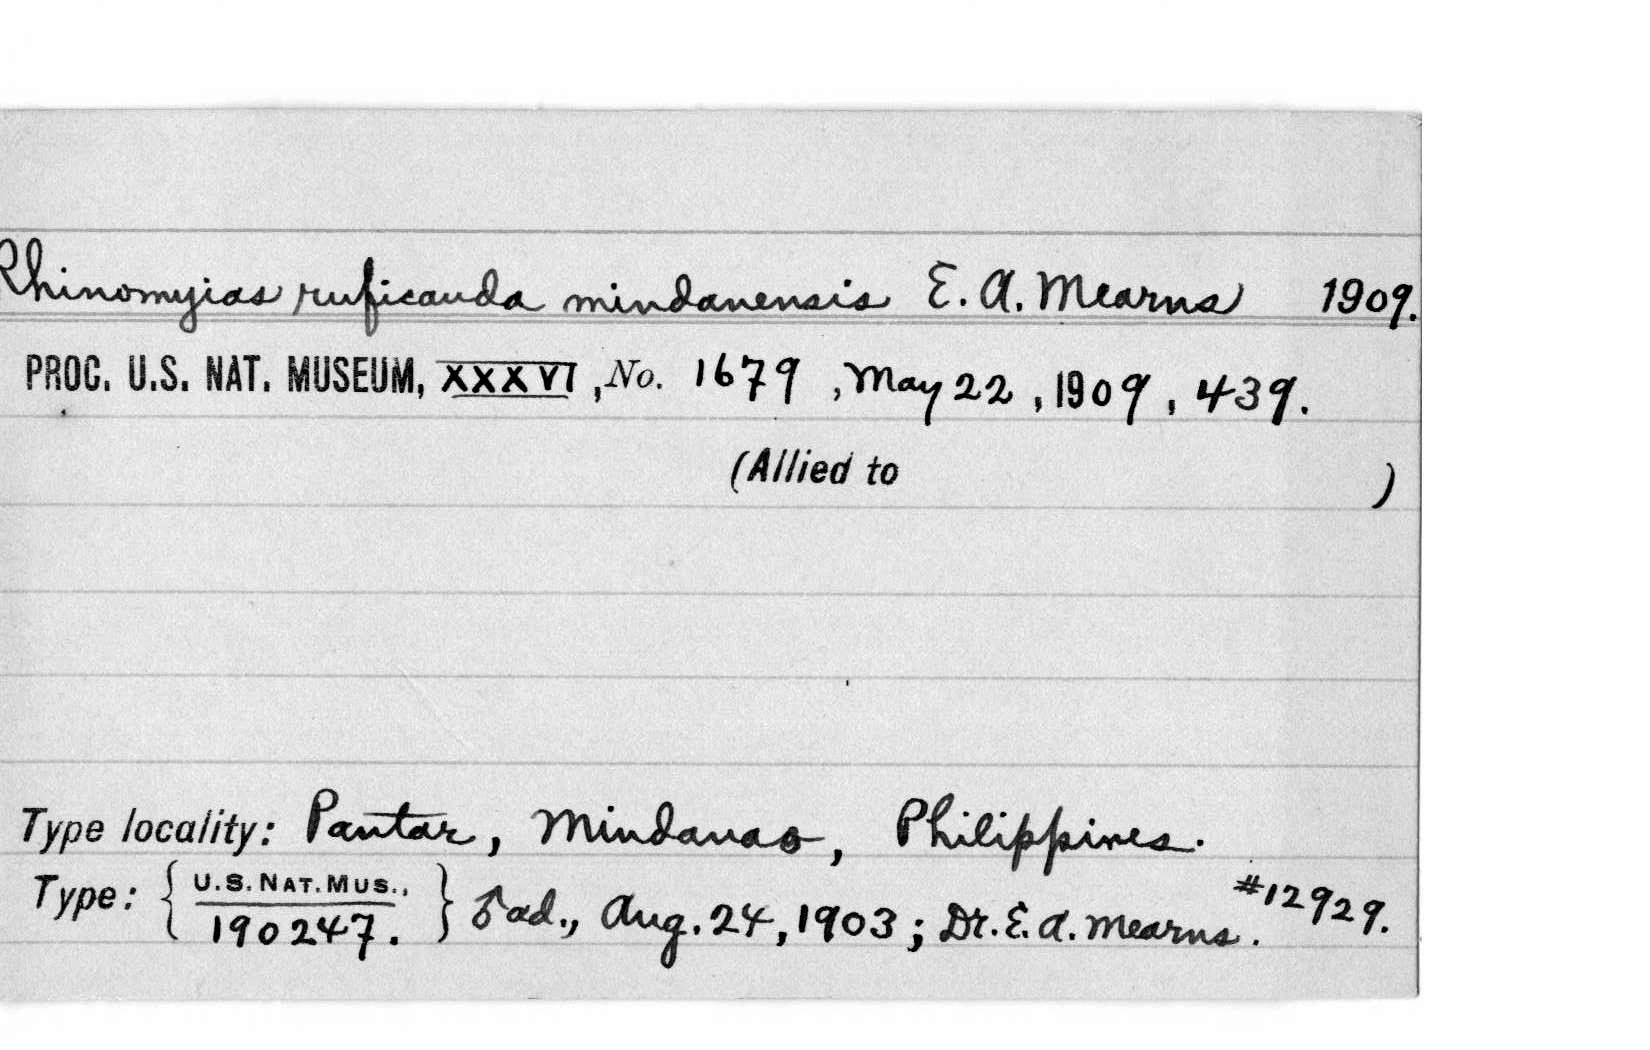 Rhinomyias ruficauda mindanensis E. A. Mearns 1909.
PROC. U.S. NAT. MUSEUM, XXXVI, No. 1679, May 22, 1909, 439.
(Allied to )
Type locality: Pantar, Mindanao, Philippines.
Type: { U.S. NAT. MUS., 190247. } ♂ ad., Aug. 24, 1903; Dr. E. A. Mearns. #12929.